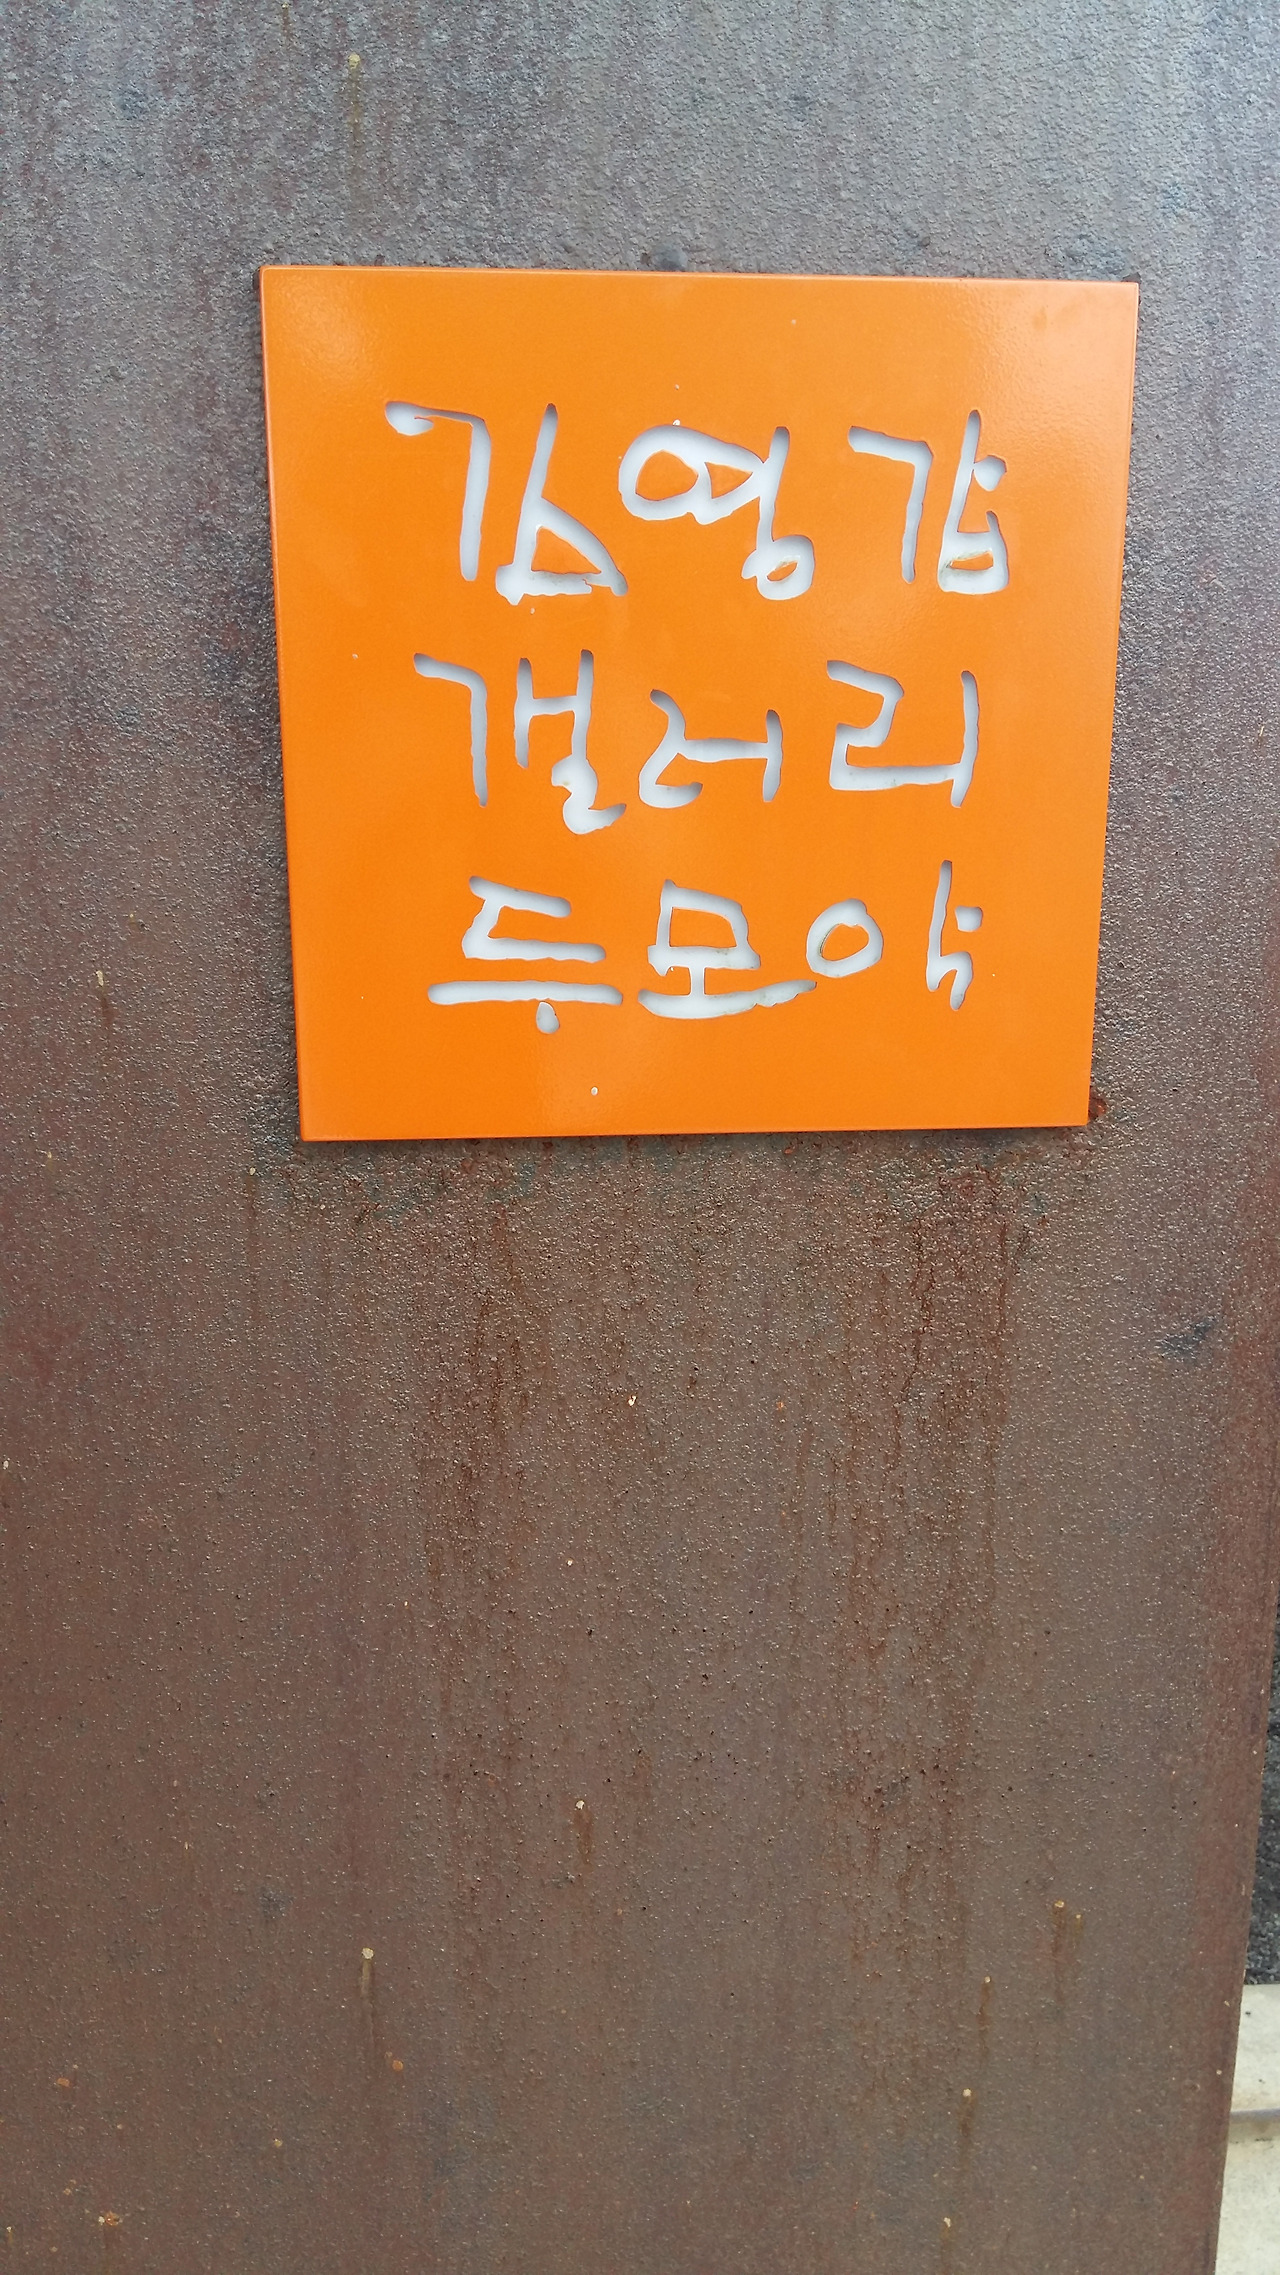 김영갑
갤러리
두모악